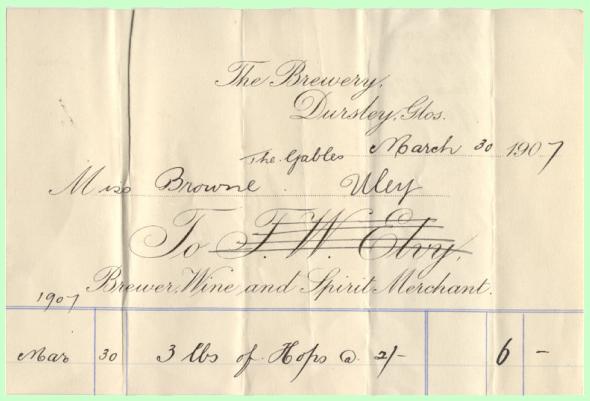 The Brewery,
Dursley, Glos.
The Gables March 30 1907
Miss Browne. Uley
To F. W. Elvy,
Brewer, Wine and Spirit Merchant.
1907
Mar 30 3 lbs of Hops @ 2/- 6 -